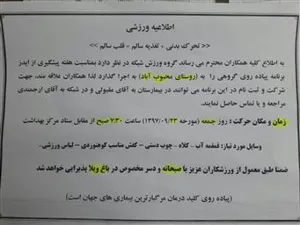 اطلاعیه ورزشی
<< تحرک بدنی ، تغذیه سالم = قلب سالم >>
به اطلاع کلیه همکاران محترم می رساند گروه ورزش شبکه در نظر دارد بمناسبت هفته پیشگیری از ایدز
برنامه پیاده روی گروهی را به (روستای محبوب آباد) به اجرا گذارد لذا همکاران علاقه مند، جهت
شرکت و ثبت نام در این برنامه می توانند در بیمارستان به آقای مقبولی و در شبکه به آقای ارجمندی
مراجعه و یا تماس حاصل نمایند.
زمان و مکان حرکت : روز جمعه (مورخه ۱۳۹۷/۰۹/۲۳) ساعت ۷:۳۰ صبح از مقابل ستاد مرکز بهداشت
وسایل مورد نیاز: قمقمه آب - کلاه - چوب دستی - کفش مناسب کوهنوردی - لباس ورزشی.
ضمنا طبق معمول از ورزشکاران عزیز با صبحانه و دسر مخصوص در باغ ویلا پذیرایی خواهد شد
(پیاده روی کلید درمان مرگبارترین بیماری های جهان است)